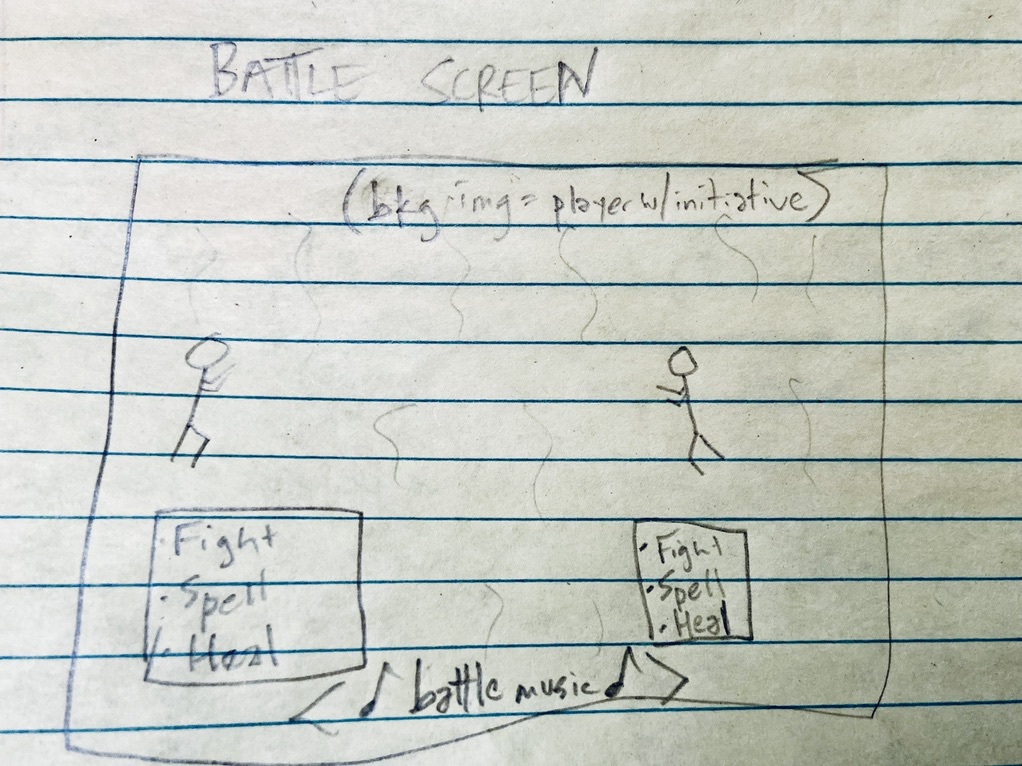 BATTLE SCREEN
(bkg img = player w/ initiative)
· Fight
· Spell
· Heal
· Fight
· Spell
· Heal
< ♪ battle music ♪ >